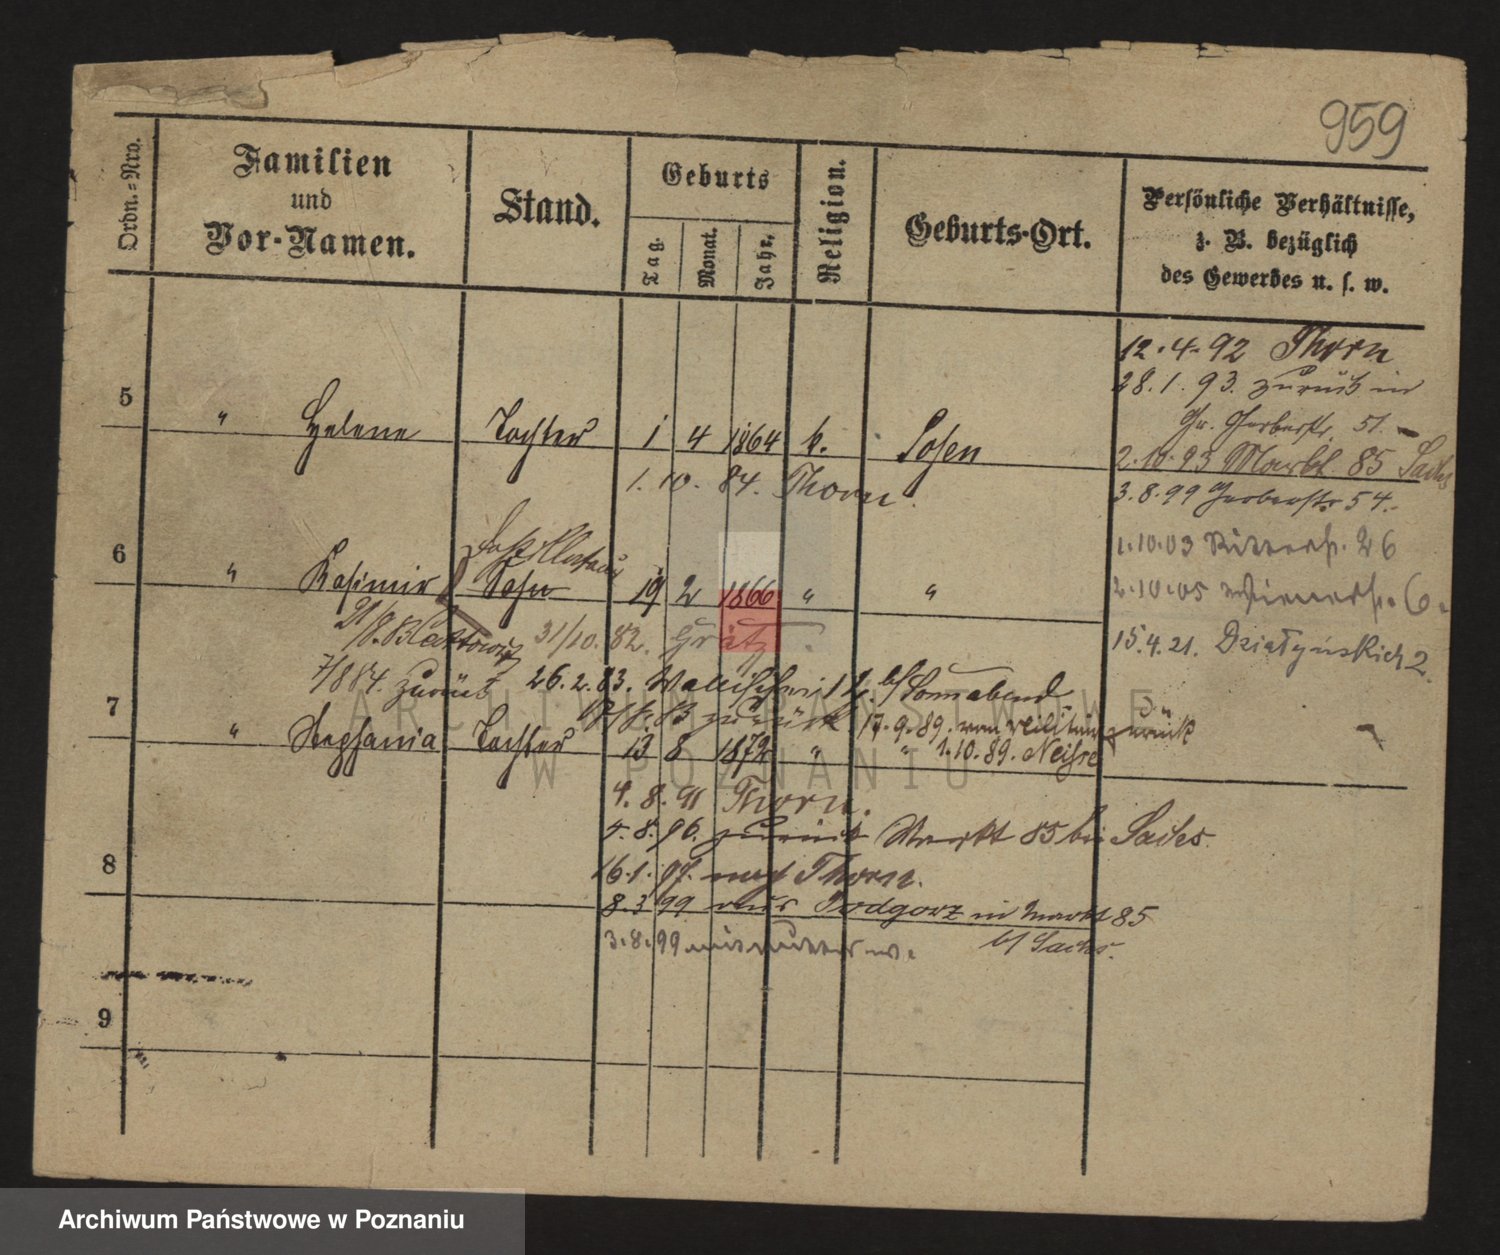 959
Ordn.-Nro.
Familien
und
Vor-Namen.
Stand.
Geburts
Tag.
Monat.
Jahr.
Religion.
Geburts-Ort.
Persönliche Verhältnisse,
z. B. bezüglich
des Gewerbes u. s. w.
12.4.92 Thorn
28.1.93. zurück in
Gr. Gerberstr. 51.
5 " Helene Tochter 1 4 1864 k. Posen
2.10.93 Markt 85 Sachs
1.10.84. Thorn.
3.8.99 Gerberstr 54.
1.10.03 Ritterstr. 26
6 " Kasimir Sohn 19 2 1866 " "
2.10.05 Wienerstr. 6.
21/8. Kattowitz 31/10.82. Grätz.
15.4.21. Działyńskich 2.
7/8 84. zurück 26.2.83. Wallischei b/ Sonnabend
zurück 17.9.89. vom Militär zurück
7 " Stephania Tochter 13 8 1872 " " 1.10.89. Neisse
4.8.91 Thorn.
4.8.96. zurück Markt 85 bei Sachs.
8
16.1.97. nach Thorn.
8.3.99 aus Podgorz in Markt 85
b/ Sachs.
3.8.99 mit Mutter w.
9
ARCHIWUM PAŃSTWOWE
W POZNANIU
Archiwum Państwowe w Poznaniu